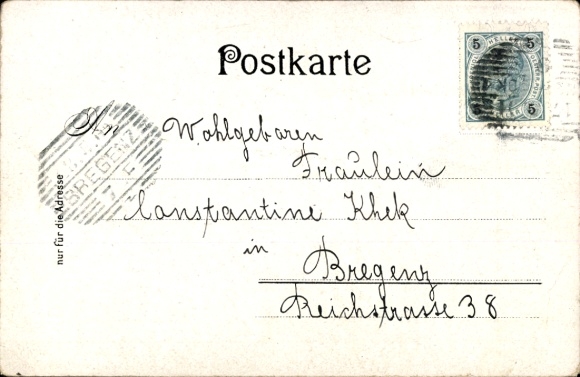 Postkarte
5 5
5 5
An Wohlgeboren
Fräulein
Constantine Khek
in
Bregenz
Reichstrasse 38
nur für die Adresse
BREGENZ